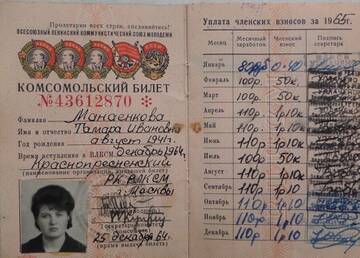 Пролетарии всех стран, соединяйтесь!
ВСЕСОЮЗНЫЙ ЛЕНИНСКИЙ КОММУНИСТИЧЕСКИЙ СОЮЗ МОЛОДЕЖИ
КОМСОМОЛЬСКИЙ БИЛЕТ
№43612870
Фамилия Манаенкова
Имя и отчество Тамара Ивановна
Год рождения август 1941г.
Время вступления в ВЛКСМ декабрь 1964г.
Краснопресненский
(наименование организации, выдавшей билет)
РК ВЛКСМ
г. Москвы
25 декабря 64г.
(время выдачи билета)
Уплата членских взносов за 1965г.
Месяц
Месячный заработок
Членский взнос
Подпись секретаря
Январь 0-40
Февраль 100р. 50к.
Март 100р. 50к.
Апрель 110р 1р10
Май 110р 1р10
Июнь 110р. 1р10
Июль 100р 50к
Август 110р. 1р10
Сентябрь 110р. 1р10
Октябрь 110р 1р10
Ноябрь 110р 1р10
Декабрь 110р. 1р10